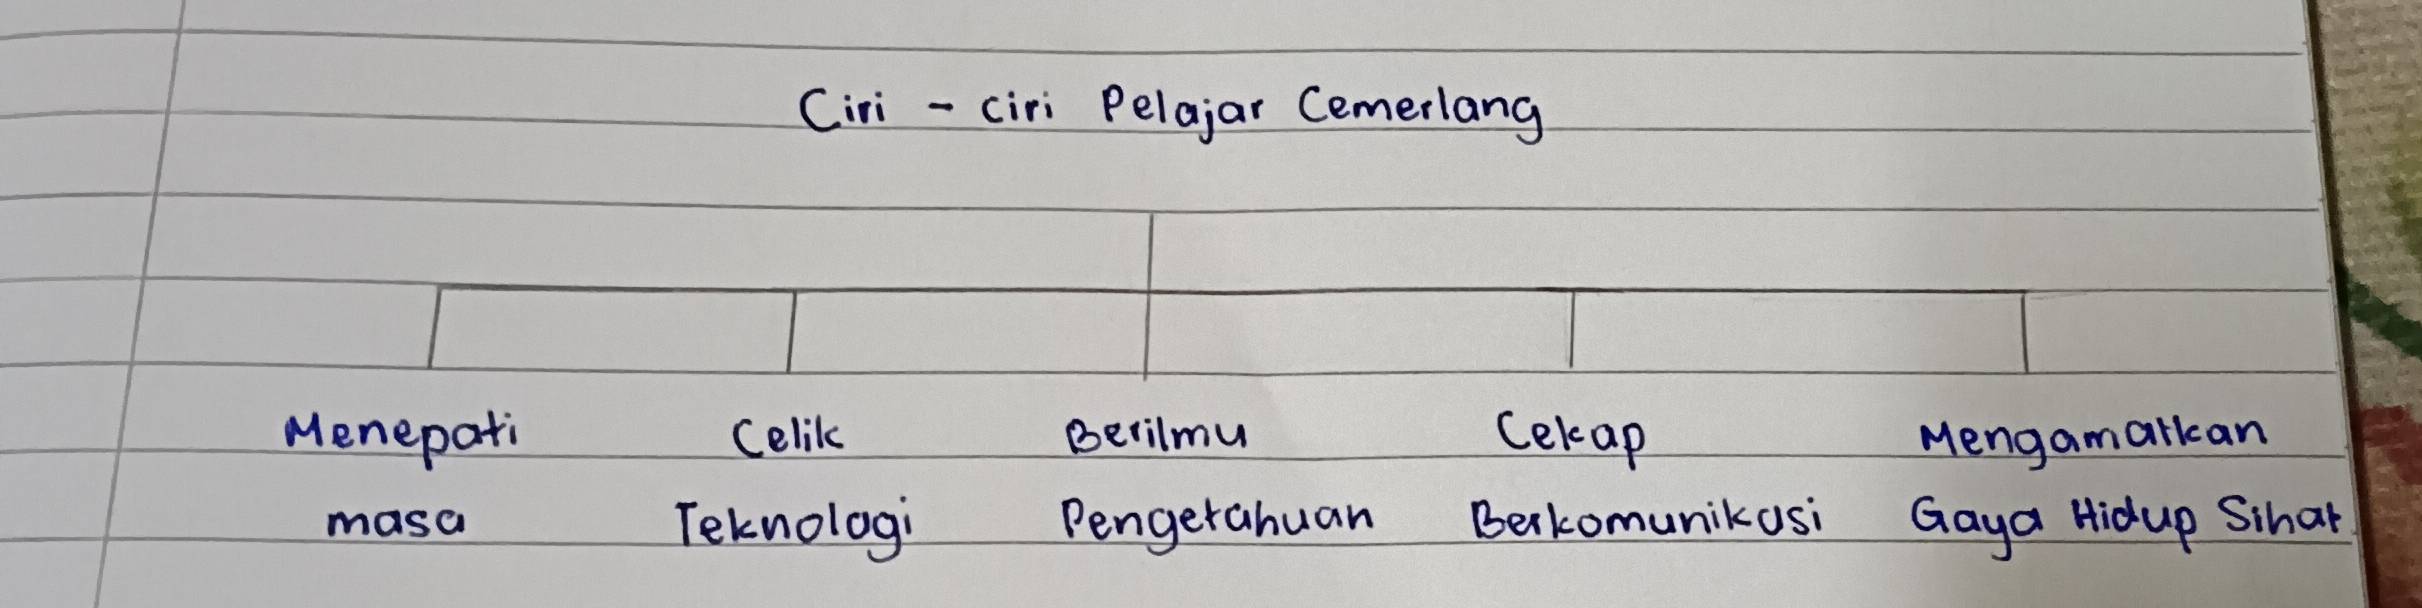 Ciri - ciri Pelajar Cemerlang
Menepati Celik Berilmu Cekap Mengamalkan
masa Teknologi Pengetahuan Berkomunikasi Gaya Hidup Sihat